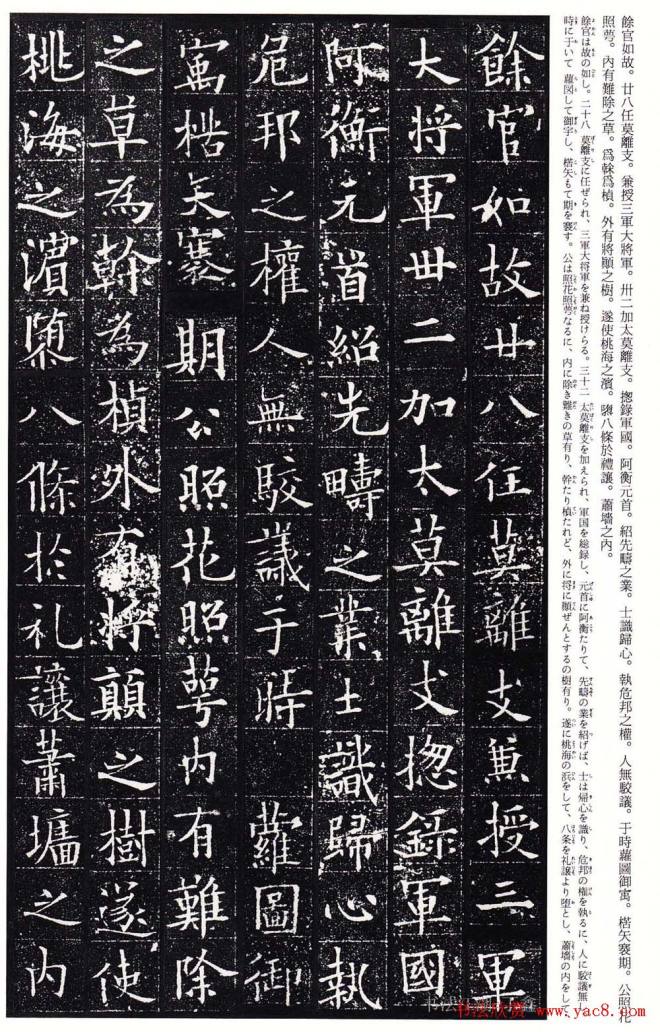 餘官如故。廿八任莫離支。兼授三軍大將軍。卅二加太莫離支。揔錄軍國。阿衡元首。紹先疇之業。士識歸心。執危邦之權。人無駮議。于時蘿圖御寓。楛矢褰期。公照花
照萼。內有難除之草。爲榦爲楨。外有將顚之樹。遂使桃海之濱。隳八條於禮讓。蕭墻之內。
餘官は故の如し。二十八 莫離支に任ぜられ、三軍大将軍を兼ね授けらる。三十二 太莫離支を加えられ、軍国を総録し、元首に阿衡たりて、先疇の業を紹げば、士は帰心を識り、危邦の権を執るに、人に駮議無し。
時に于いて 蘿図して御宇し、楛矢もて期を褰す。公は照花照萼なるに、内に除き難きの草有り、幹たり楨たれど、外に将に顚ぜんとするの樹有り。遂に桃海の浜をして、八条を礼譲より堕とし、蕭墻の内をして
餘官如故廿八任莫離支兼授三軍
大将軍卅二加太莫離支揔錄軍國
阿衡元首紹先疇之業士識歸心執
危邦之權人無駮議于時蘿圖御
寓楛矢褰期公照花照萼内有難除
之草為幹為楨外有将顛之樹遂使
桃海之濱隳八條於礼讓蕭墻之内
书法欣赏 www.yac8.com